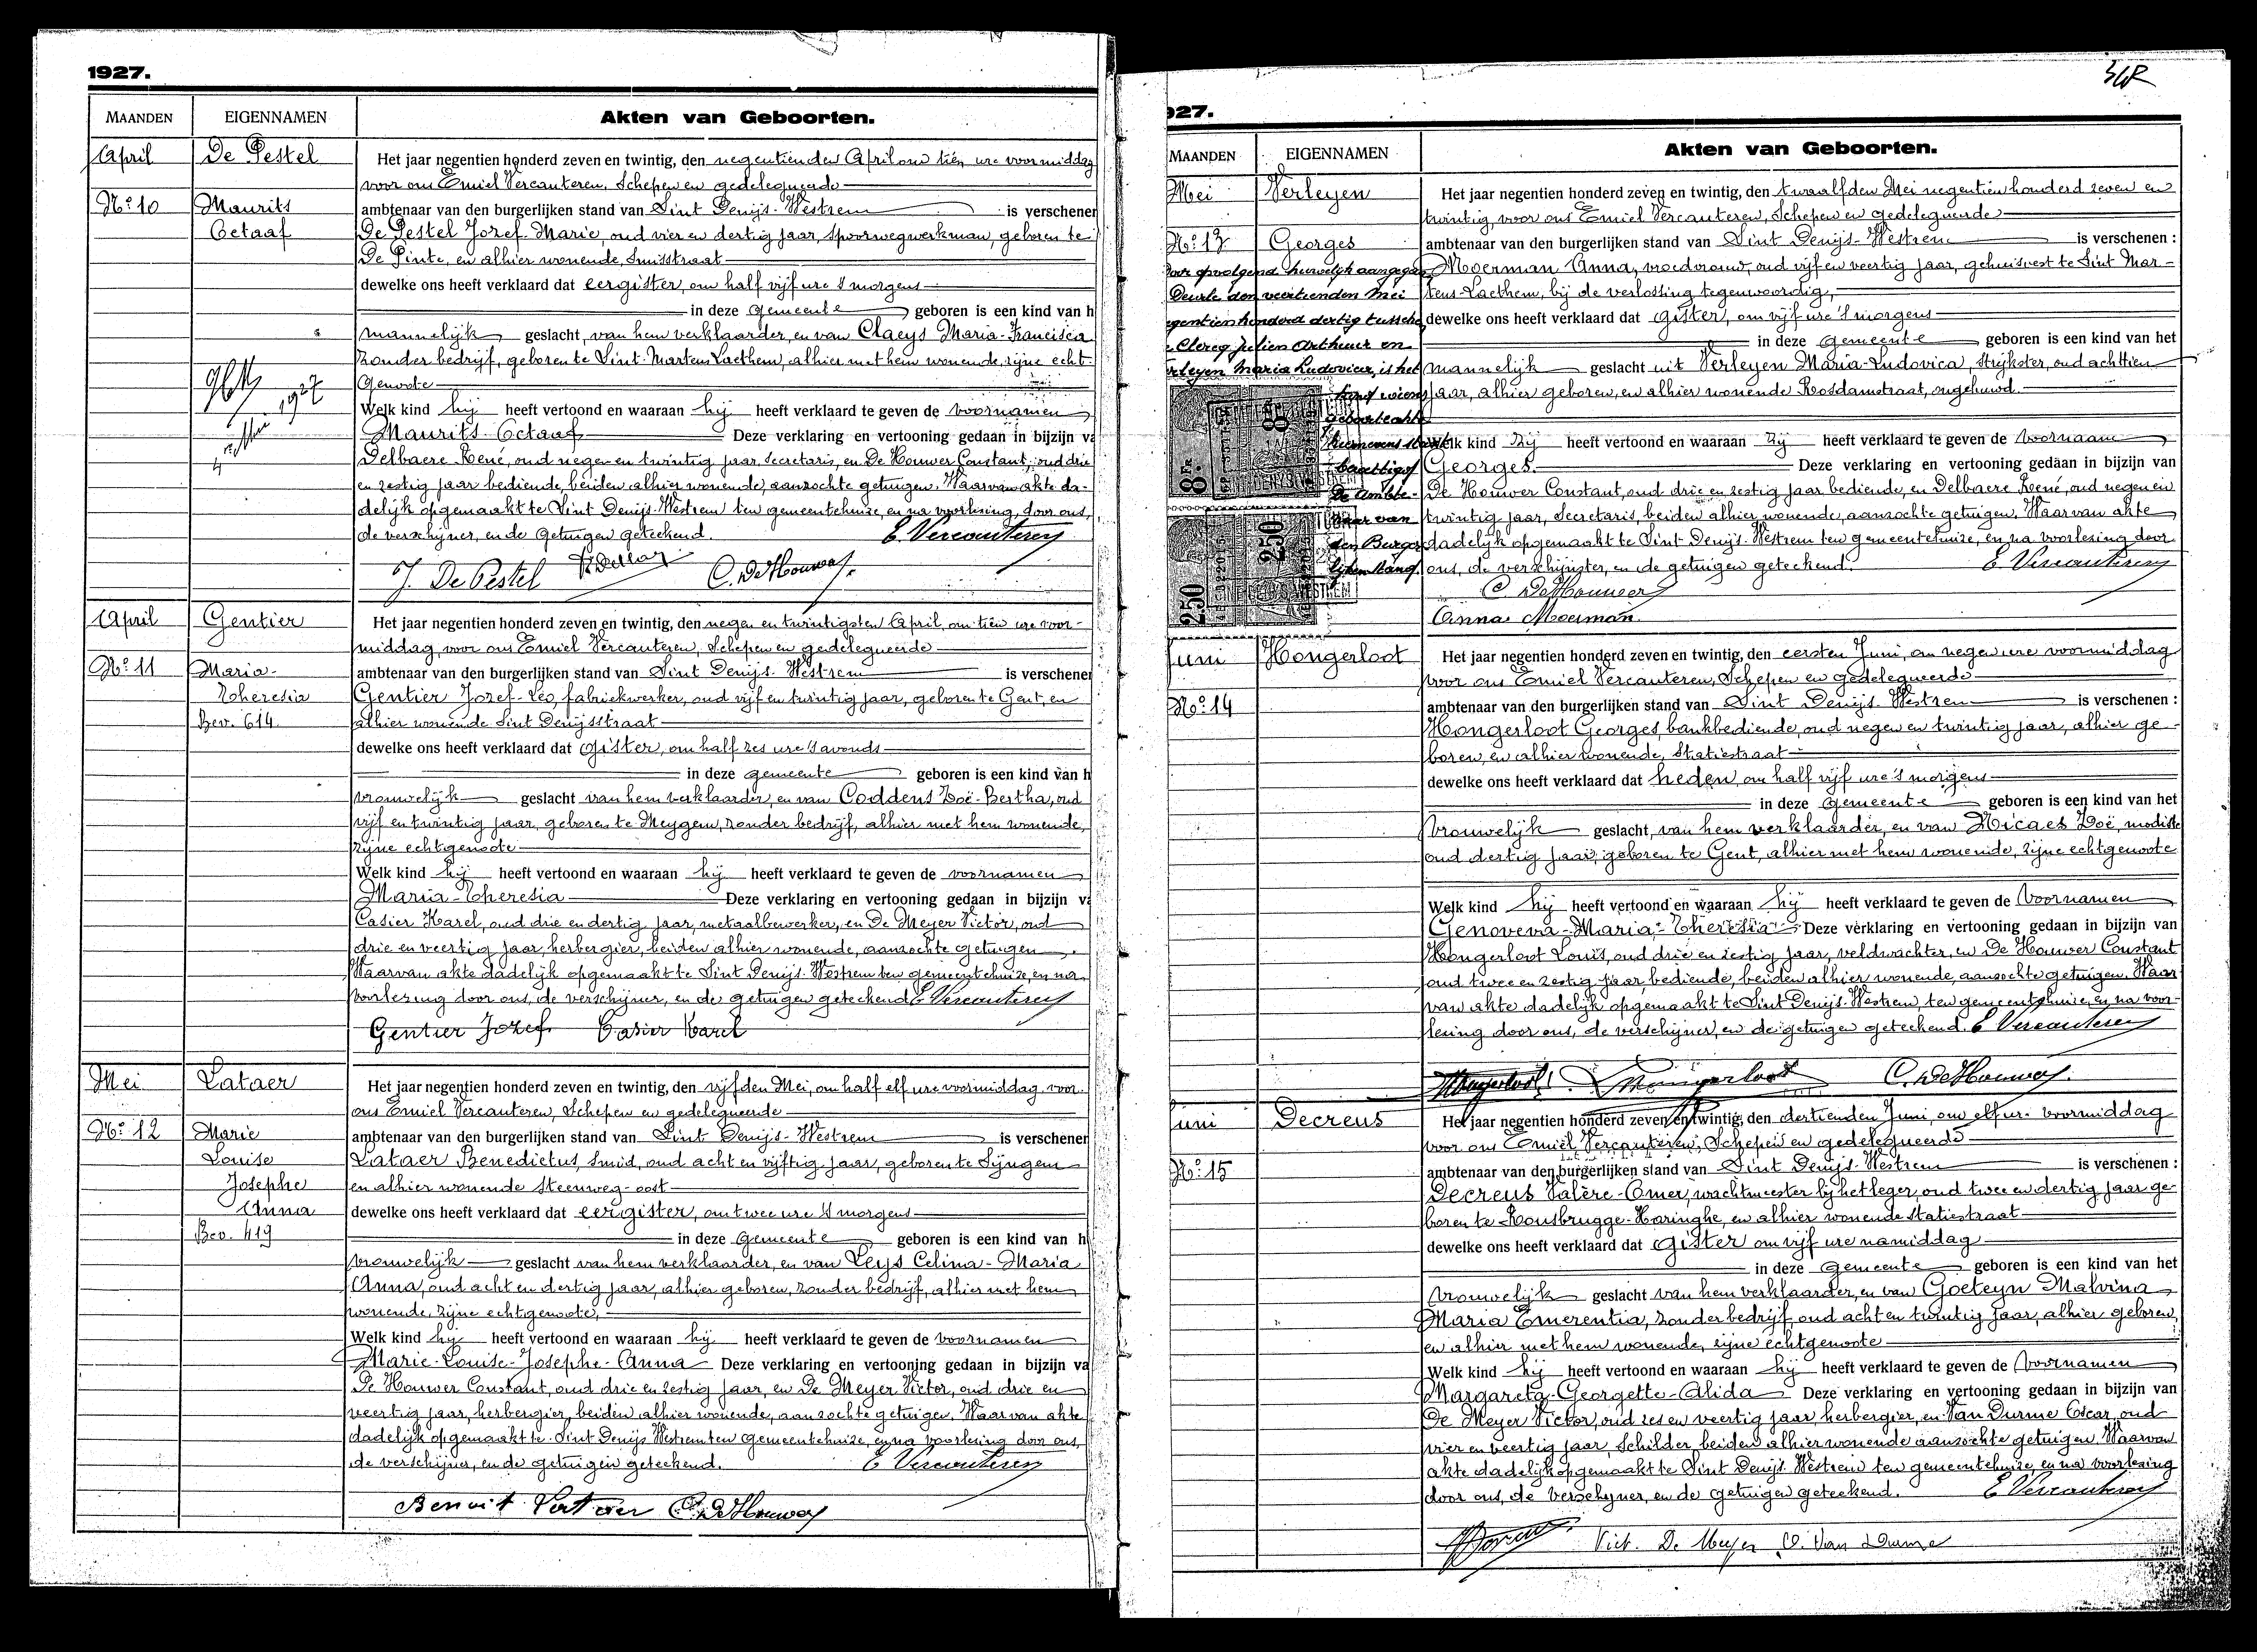 1927.
MAANDEN EIGENNAMEN Akten van Geboorten.
April De Pestel Het jaar negentien honderd zeven en twintig, den negentienden April om tien ure voormiddag
voor ons Emiel Vercauteren, Schepen en gedelegueerde
No 10 Maurits ambtenaar van den burgerlijken stand van Sint Denijs-Westrem is verschenen
Octaaf De Pestel Jozef Marie, oud vier en dertig jaar, spoorwegwerkman, geboren te
De Pinte, en alhier wonende, Smisstraat
dewelke ons heeft verklaard dat eergister, om half vijf ure 's morgens
in deze gemeente geboren is een kind van h
mannelijk geslacht, van hem verklaarder, en van Claeys Maria-Francisca
zonder bedrijf, geboren te Sint-Martens Laethem, alhier met hem wonende, zijne echt-
genoote
1927
Welk kind hij heeft vertoond en waaraan hij heeft verklaard te geven de voornamen
Maurits-Octaaf Deze verklaring en vertooning gedaan in bijzijn va
Delbaere René, oud negen en twintig jaar, secretaris, en De Houwer Constant, oud drie
en zestig jaar bediende, beiden alhier wonende, aanzochte getuigen. Waarvan akte da-
delijk opgemaakt te Sint Denijs-Westrem ten gemeentehuize, en na voorlezing, door ons,
de verschijner, en de getuigen geteekend. E Vercauteren
J. De Pestel C. De Houwer.
April Gentier Het jaar negentien honderd zeven en twintig, den negen en twintigsten April, om tien ure voor-
middag, voor ons Emiel Vercauteren, Schepen en gedelegueerde
No 11 Maria- ambtenaar van den burgerlijken stand van Sint Denijs-Westrem is verschenen
Theresia Gentier Jozef-Leo, fabriekwerker, oud vijf en twintig jaar, geboren te Gent, en
Bev. 614 alhier wonende Sint Denijsstraat
dewelke ons heeft verklaard dat gister, om half zes ure 's avonds
in deze gemeente geboren is een kind van h
vrouwelijk geslacht van hem verklaarder, en van Coddens Zoë-Bertha, oud
vijf en twintig jaar, geboren te Meygem, zonder bedrijf, alhier met hem wonende,
zijne echtgenoote
Welk kind hij heeft vertoond en waaraan hij heeft verklaard te geven de voornamen
Maria-Theresia Deze verklaring en vertooning gedaan in bijzijn va
Casier Karel, oud drie en dertig jaar, metaalbewerker, en De Meyer Victor, oud
drie en veertig jaar, herbergier, beiden alhier wonende, aanzochte getuigen
Waarvan akte dadelijk opgemaakt te Sint Denijs-Westrem ten gemeentehuize, en na
voorlezing door ons, de verschijner, en de getuigen geteekend E Vercauteren
Gentier Jozef Casier Karel
Mei Lataer Het jaar negentien honderd zeven en twintig, den vijfden Mei, om half elf ure voormiddag voor
ons Emiel Vercauteren, Schepen en gedelegueerde
No 12 Marie ambtenaar van den burgerlijken stand van Sint Denijs-Westrem is verschenen
Louise Lataer Benedictus, smid, oud acht en vijftig jaar, geboren te Syngem
Josephe en alhier wonende steenweg-oost
Anna dewelke ons heeft verklaard dat eergister, om twee ure 's morgens
Bev. 419 in deze gemeente geboren is een kind van h
vrouwelijk geslacht van hem verklaarder, en van Leys Celina-Maria
Anna, oud acht en dertig jaar, alhier geboren, zonder bedrijf, alhier met hem
wonende, zijne echtgenoote,
Welk kind hij heeft vertoond en waaraan hij heeft verklaard te geven de voornamen
Marie-Louise-Josephe-Anna Deze verklaring en vertooning gedaan in bijzijn va
De Houwer Constant, oud drie en zestig jaar, en De Meyer Victor, oud drie en
veertig jaar, herbergier, beiden alhier wonende, aanzochte getuigen. Waarvan akte
dadelijk opgemaakt te Sint Denijs Westrem ten gemeentehuize, en na voorlezing door ons,
de verschijner, en de getuigen geteekend. E Vercauteren
Benoit Lataer C. De Houwer
927.
MAANDEN EIGENNAMEN Akten van Geboorten.
Mei Verleyen Het jaar negentien honderd zeven en twintig, den twaalfden Mei negentien honderd zeven en
twintig, voor ons Emiel Vercauteren, Schepen en gedelegueerde
No 13 Georges ambtenaar van den burgerlijken stand van Sint Denijs-Westrem is verschenen :
oor opvolgend huwelijk aangegaan Moerman Anna, vroedvrouw, oud vijf en veertig jaar, gehuisvest te Sint Mar-
Deurle den veertienden Mei tens-Laethem, bij de verlossing tegenwoordig,
egentien honderd dertig tussche dewelke ons heeft verklaard dat gister, om vijf ure 's morgens
Clercq Julien Arthur en in deze gemeente geboren is een kind van het
rleyen Maria Ludovica, is het mannelijk geslacht uit Verleyen Maria-Ludovica, strijkster, oud achttien
kind wiens jaar, alhier geboren, en alhier wonende Rosdamstraat, ongehuwd.
geboorteakte
Welk kind zij heeft vertoond en waaraan zij heeft verklaard te geven de voornaam
Georges. Deze verklaring en vertooning gedaan in bijzijn van
De Ambte- De Houwer Constant, oud drie en zestig jaar bediende, en Delbaere René, oud negen en
naar van twintig jaar, Secretaris, beiden alhier wonende, aanzochte getuigen. Waarvan akte
den Burger dadelijk opgemaakt te Sint-Denijs-Westrem ten gemeentehuize, en na voorlezing door
lijken Stand. ons, de verschijnster, en de getuigen geteekend. E Vercauteren
C. De Houwer
Anna Moerman.
8 Fr.
250
250
Juni Hongerloot Het jaar negentien honderd zeven en twintig, den eersten Juni, om negen ure voormiddag
voor ons Emiel Vercauteren, Schepen en gedelegueerde
No 14 ambtenaar van den burgerlijken stand van Sint Denijs-Westrem is verschenen :
Hongerloot Georges, bankbediende, oud negen en twintig jaar, alhier ge-
boren, en alhier wonende, Statiestraat
dewelke ons heeft verklaard dat heden, om half vijf ure 's morgens
in deze gemeente geboren is een kind van het
vrouwelijk geslacht, van hem verklaarder, en van Micaes Zoë, modiste
oud dertig jaar, geboren te Gent, alhier met hem wonende, zijne echtgenoote
Welk kind hij heeft vertoond en waaraan hij heeft verklaard te geven de voornamen
Genoveva-Maria-Theresia Deze verklaring en vertooning gedaan in bijzijn van
Hongerloot Louis, oud drie en zestig jaar, veldwachter, en De Houwer Constant
oud twee en zestig jaar, bediende, beiden alhier wonende, aanzochte getuigen. Waar
van akte dadelijk opgemaakt te Sint Denijs-Westrem, ten gemeentehuize, en na voor-
lezing door ons, de verschijner, en de getuigen geteekend. E Vercauteren
Hongerloot Hongerloot C. De Houwer.
Juni Decreus Het jaar negentien honderd zeven en twintig, den dertienden Juni, om elf ur. voormiddag
voor ons Emiel Vercauteren, Schepen en gedelegueerde
No 15 ambtenaar van den burgerlijken stand van Sint Denijs-Westrem is verschenen :
Decreus Valère-Omer, wachtmeester bij het leger, oud twee en dertig jaar ge-
boren te Rousbrugge-Haringhe, en alhier wonende Statiestraat
dewelke ons heeft verklaard dat gister om vijf ure namiddag
in deze gemeente geboren is een kind van het
vrouwelijk geslacht van hem verklaarder, en van Goeteyn Malvina
Maria Emerentia, zonder bedrijf, oud acht en twintig jaar, alhier geboren,
en alhier met hem wonende, zijne echtgenoote
Welk kind hij heeft vertoond en waaraan hij heeft verklaard te geven de voornamen
Margareta-Georgette-Alida Deze verklaring en vertooning gedaan in bijzijn van
De Meyer Victor, oud zes en veertig jaar, herbergier, en Van Durme Oscar, oud
vier en veertig jaar, Schilder beiden alhier wonende aanzochte getuigen. Waarvan
akte dadelijk opgemaakt te Sint Denijs-Westrem ten gemeentehuize, en na voorlezing
door ons, de verschijner, en de getuigen geteekend. E Vercauteren
Vict. De Meyer O. Van Durme